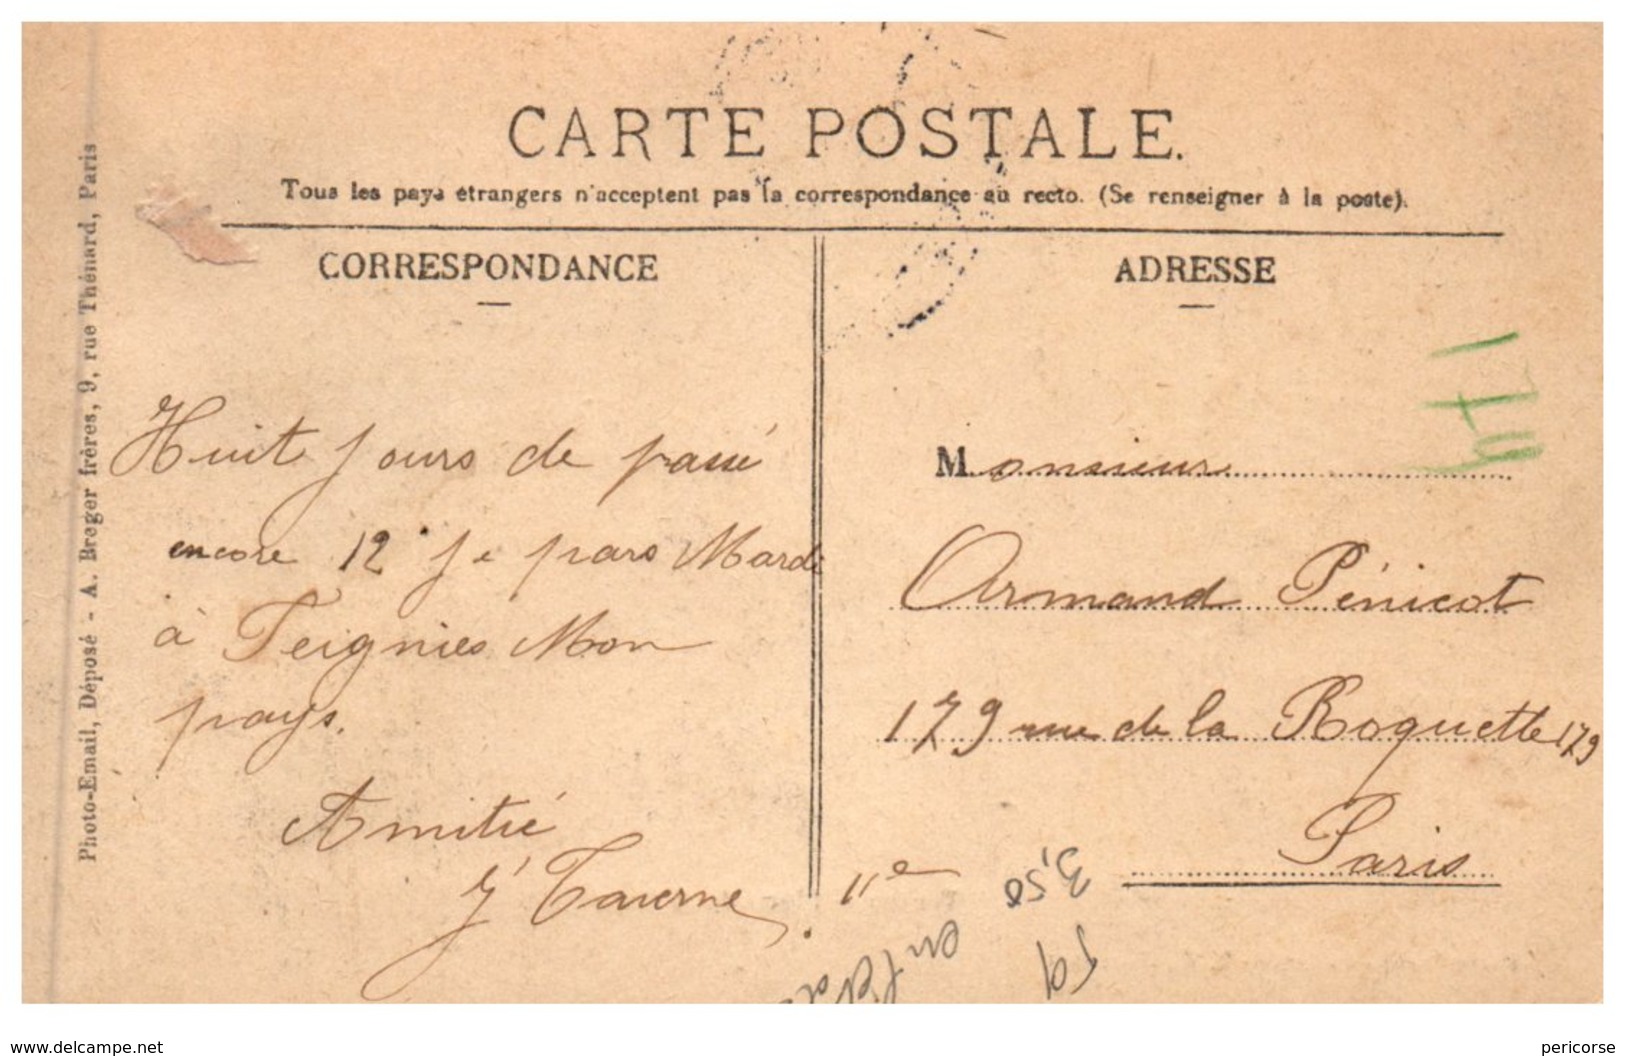 CARTE POSTALE.
Tous les pays étrangers n'acceptent pas la correspondance au recto. (Se renseigner à la poste).
CORRESPONDANCE
ADRESSE
Photo-Email, Déposé - A. Breger frères, 9, rue Thénard, Paris
Huit jours de passé
encore 12 je pars Mardi
à Feignies Mon
pays.
Amitié
J Taverne
Monsieur
Armand Pénicot
179 rue de la Roquette 179
Paris
11e
3,50
en l'état
www.delcampe.net
pericorse